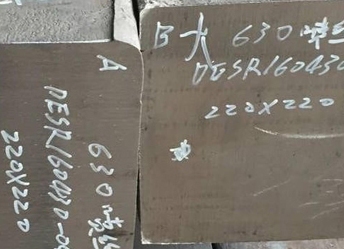 B 大 630
DESR160430
220X220
A
630
DESR160430-0
220X220